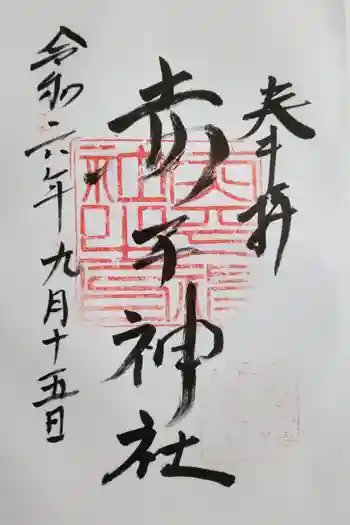 奉拝
赤子神社
令和六年九月十五日